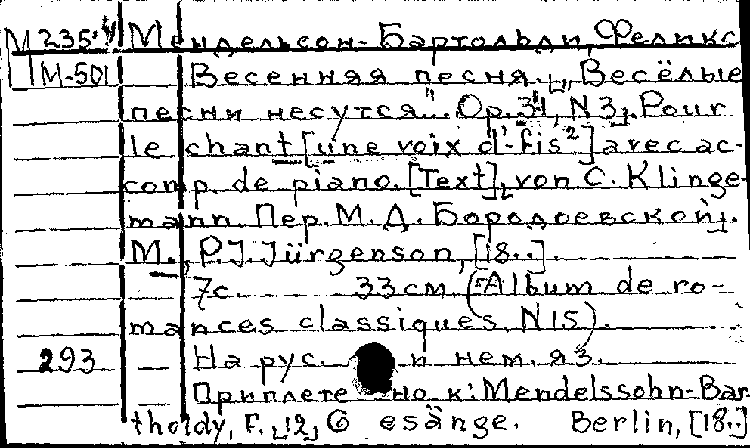 М 235.4 Мендельсон-Бартольди, Феликс
М-501 Весенняя песня. „Весёлые
песни несутся". Op. 34, N 3. Pour
le chant [une voix d'-fis²] avec ac-
comp. de piano. [Text] von C. Klinge-
mann. Пер. М. Д. Бородоевской.
М., P. J. Jürgenson, [18..].
7с. 33 см (Album de ro-
mances classiques. N 15).
293 На рус. и нем. яз.
Приплетено к: Mendelssohn-Bar
tholdy, F. 12 Gesänge. Berlin, [18..]